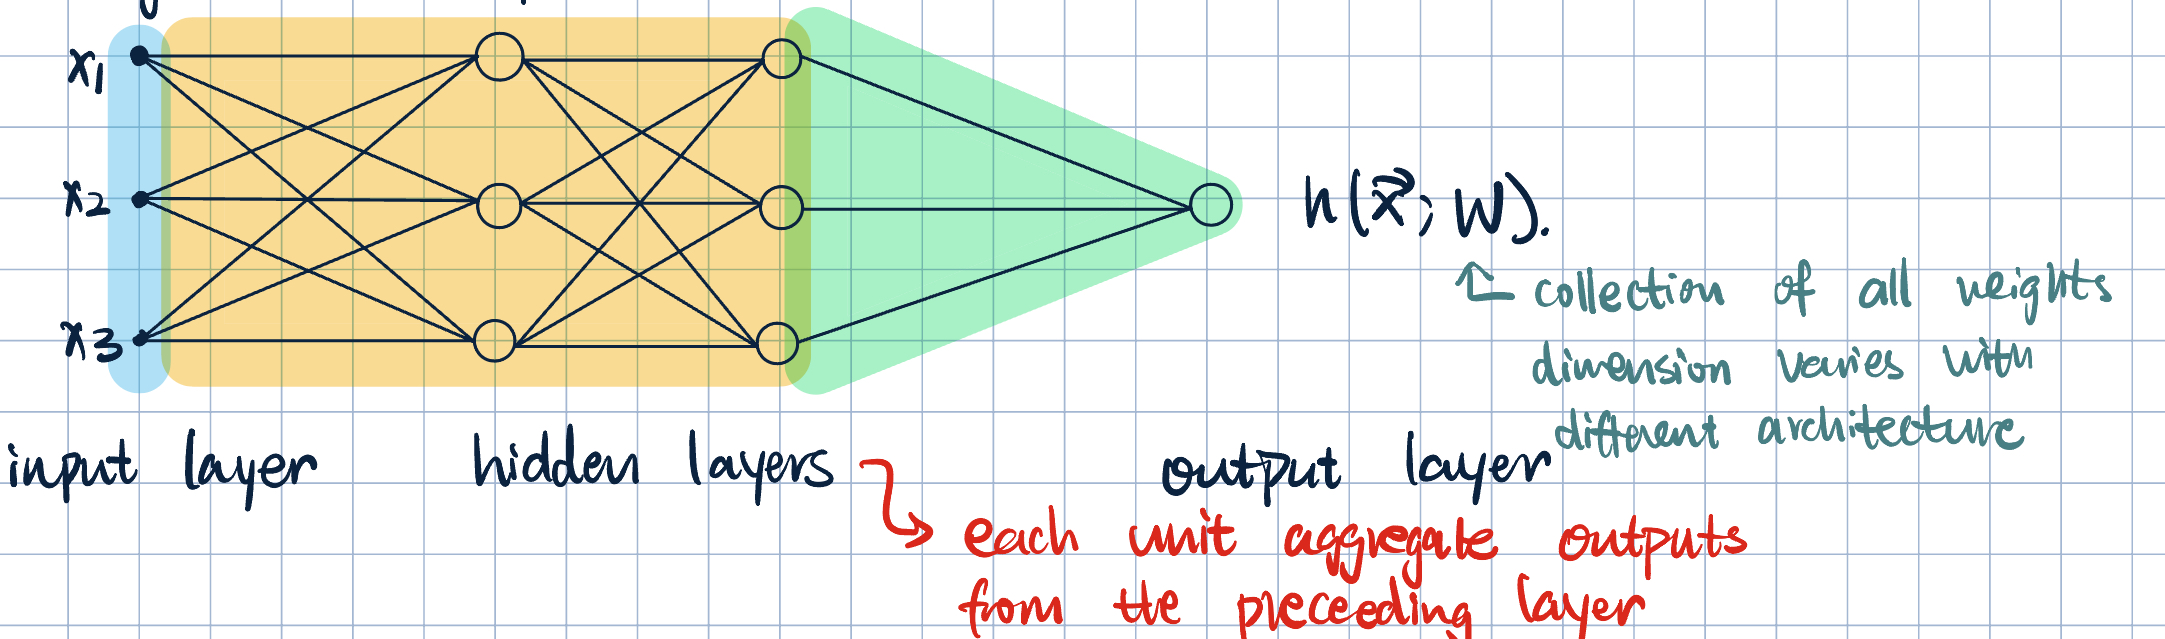 x1
x2
x3
h(x⃗; W).
collection of all weights
dimension varies with
different architecture
input layer hidden layers output layer
each unit aggregate outputs
from the preceeding layer